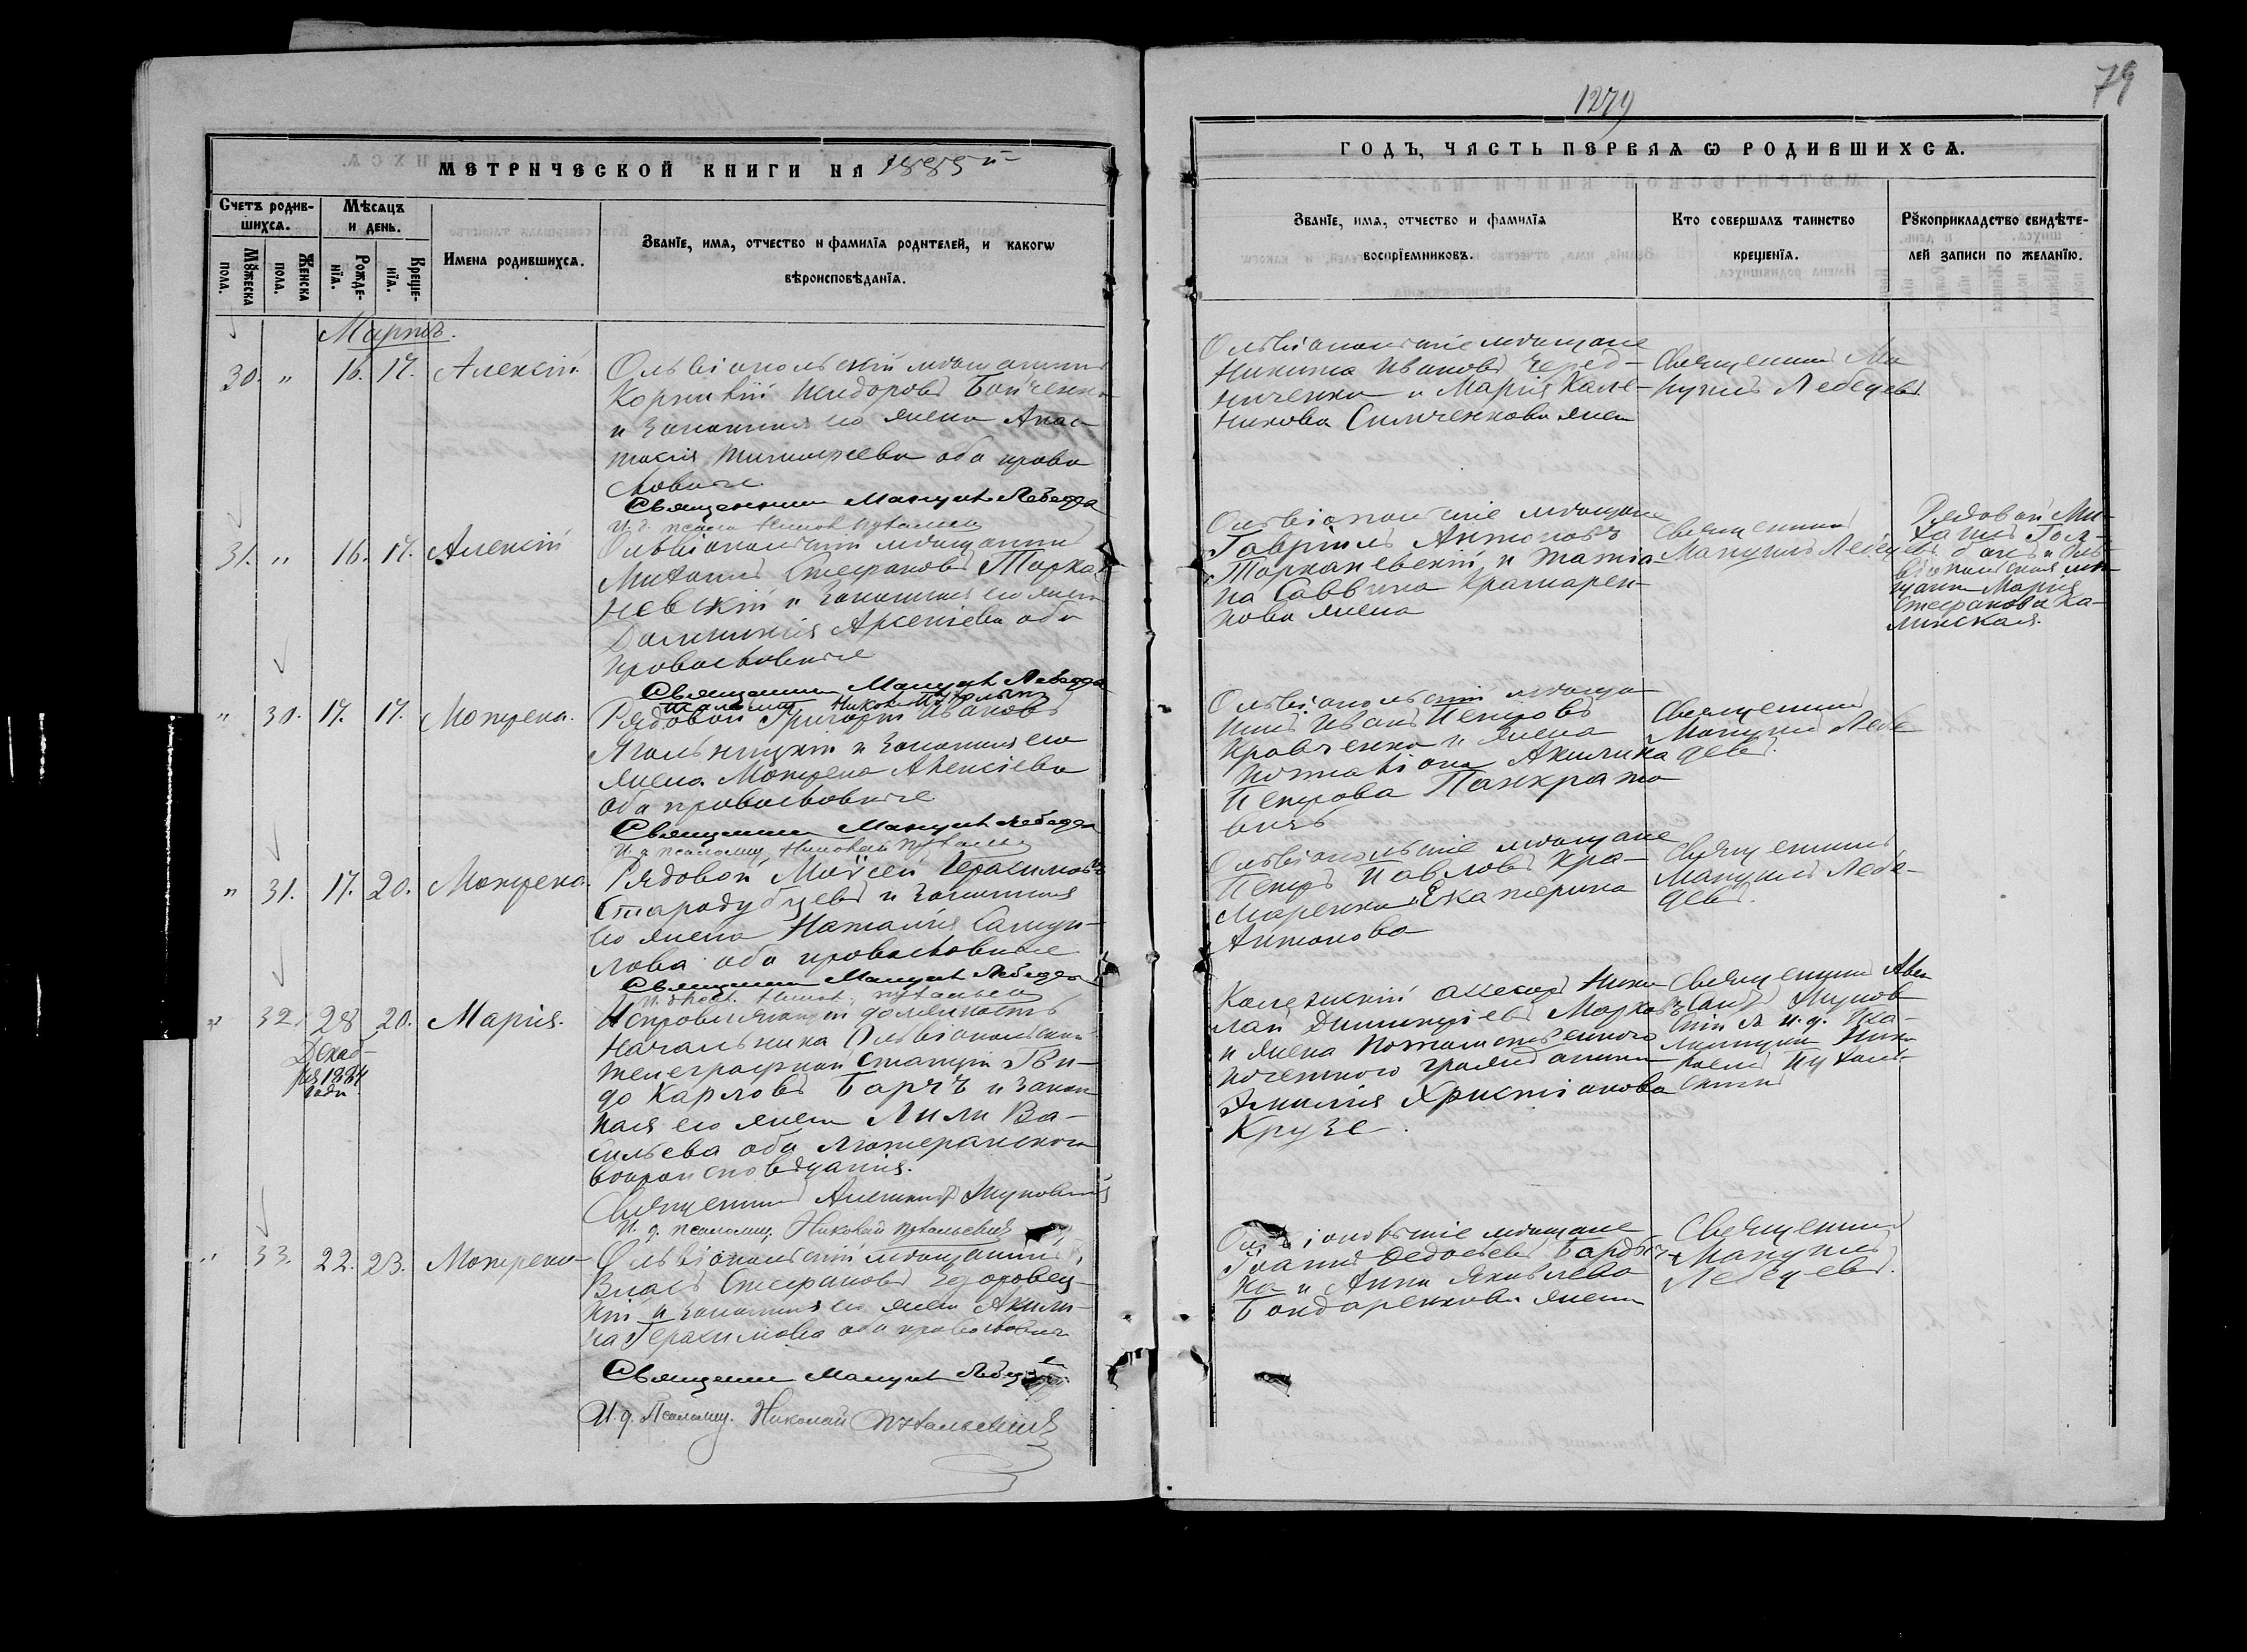 79
1279
МЕТРИЧЕСКОЙ КНИГИ НА 1885й
ГОДЪ, ЧАСТЬ ПЕРВАЯ Ѡ РОДИВШИХСѦ.
Счетъ родив-
шихсѧ.
Мѹжеска
пола.
Женска
пола.
Мѣсѧцъ
и день.
Рожде-
нїѧ.
Креще-
нїѧ.
Имена родившихсѧ.
Званїе, имѧ, отчество и фамилїѧ родителей, и какогѡ
вѣроисповѣданїѧ.
Званїе, имѧ, отчество и фамилїѧ
воспрїемниковъ.
Кто совершалъ таинство
крещенїѧ.
Рꙋкоприкладство свидѣте-
лей записи по желанїю.
Мартъ.
30. " 16. 17. Алексій
Ольвіопольскій мѣщанинъ
Корнилій Исидоровъ Бойченко
и законная его жена Анас-
тасія Тимофеева оба право
славные.
Священникъ Мануилъ Лебедевъ
Ольвіопольские мѣщане
Никита Ивановъ Черед-
ниченко и Марія Кале-
никова Симченкова жена
Священникъ Ма
нуилъ Лебедевъ.
31. " 16. 17. Алексій
Ольвіопольскій мѣщанинъ
Михаилъ Стефановъ Торка
невскій и законная его жена
Домникія Арсеніева оба
православные
Священникъ Мануилъ Лебедевъ
Ольвіопольские мѣщане
Гавріилъ Антоновъ
Торканевскій и Татіа-
на Саввина Крамарен-
кова жена
Священникъ
Мануилъ Лебедевъ
Рядовой Ми-
хаилъ
Марія
Стефанова Ка-
линская.
" 30. 17. 17. Мотрена.
Рядовой Григорій Ивановъ
Ягольницкій и законная его
жена Мотрена Алексіева
оба православные
Священникъ Мануилъ Лебедевъ
Ольвіопольскій мѣща
нинъ Иванъ Петровъ
Кравченко и жена
Акилина
Петрова Панкрато
вичъ
Священникъ
Мануилъ Лебе
девъ.
" 31. 17. 20. Мотрена.
Рядовой Моѵсей Герасимовъ
Стародубцевъ и законная
его жена Наталія Самуи-
лова оба православные
Священникъ Мануилъ Лебедевъ
Ольвіопольские мѣщане
Петръ Павловъ Кра-
маренко и Екатерина
Антонова
Священникъ
Мануилъ Лебе-
девъ.
" 32. 28 20. Марія.
Декаб-
ря 1884
года
Исправляющій должность
Начальника Ольвіопольской
телеграфной станціи Гви-
до Карловъ Барчъ и закон
ная его жена Лили Ва-
сильева оба лютеранскаго
вѣроисповѣданія.
Священникъ Александръ
И. д. псаломщ. Николай
Колежскій асесоръ Нико
лай Димитріевъ Марковъ
и жена потомственнаго
почетнаго гражданина
Эмилія Христіанова
Крузе.
Священникъ Алек
сандръ
и И. д. Пса-
ломщика Нико
лай
" 33. 22. 23. Мотрена
Ольвіопольскій мѣщанинъ
Власъ Стефановъ
и законная его жена Акили-
на Герасимова оба православные
Священникъ Мануилъ Лебедевъ
И. д. Псаломщ. Николай
Ольвіопольские мѣщане
Іоаннъ Федосѣевъ
и Анна Яковлева
Бондаренкова жена
Священникъ
Мануилъ
Лебедевъ.